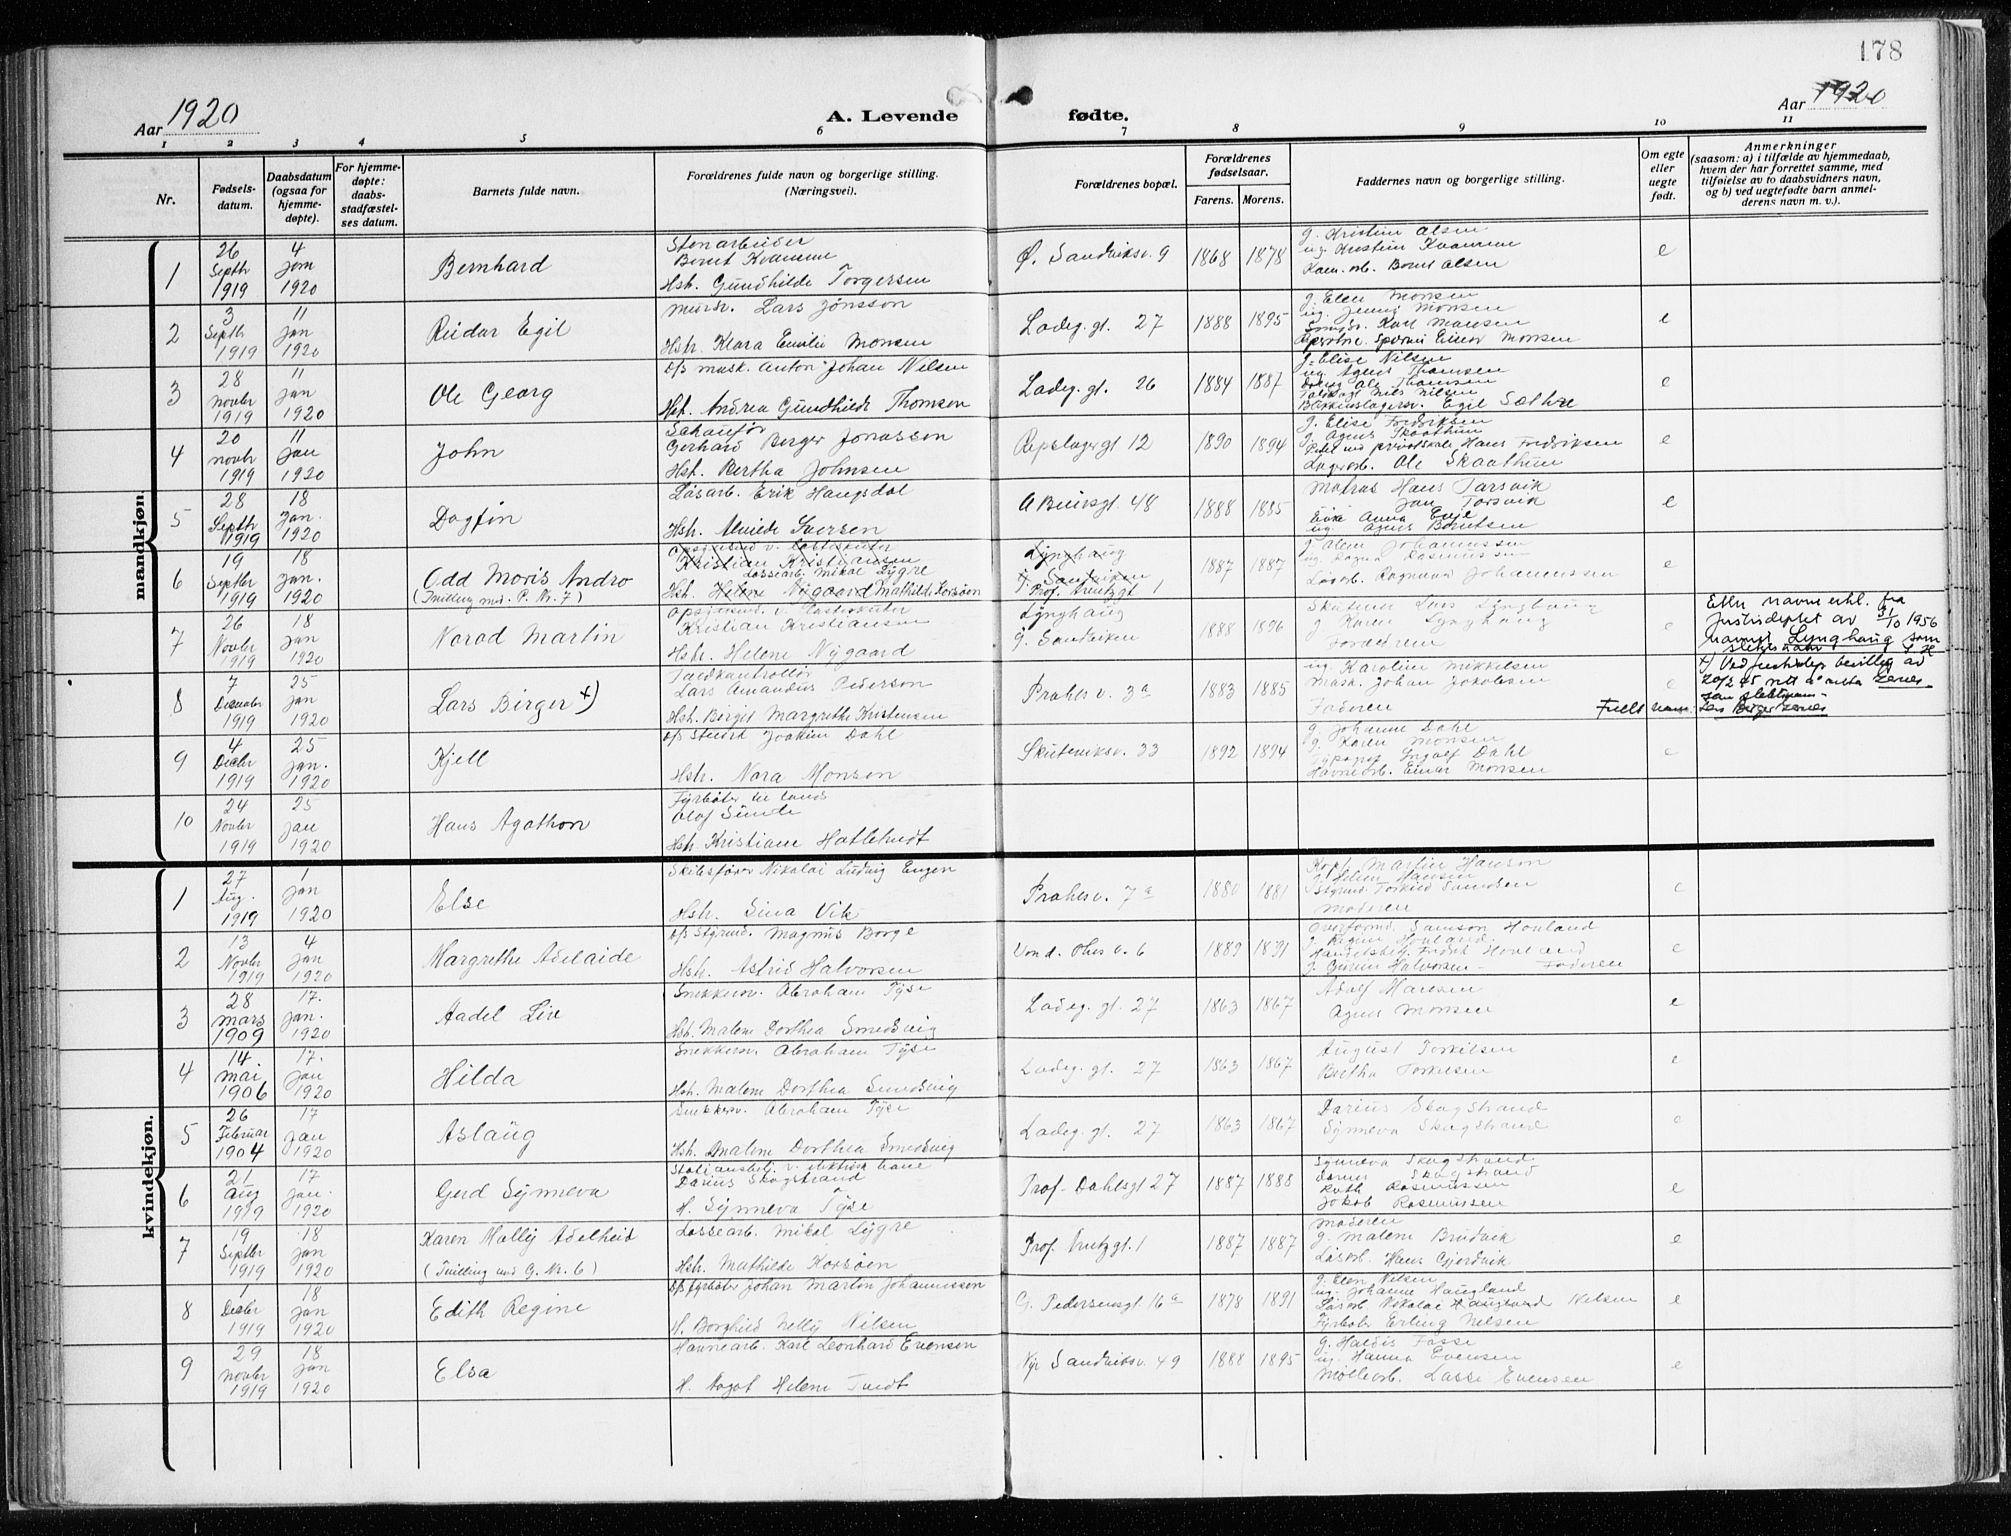 178
Aar 1920
A. Levende fødte.
Aar 1920
1 2 3 4 5 6 7 8 9 10 11
Nr.
Fødsels-
datum.
Daabsdatum
(ogsaa for
hjemme-
døpte).
For hjemme-
døpte:
daabs-
stadfæstel-
ses datum.
Barnets fulde navn.
Forældrenes fulde navn og borgerlige stilling.
(Næringsvei).
Forældrenes bopæl.
Forældrenes
fødselsaar.
Farens. Morens.
Faddernes navn og borgerlige stilling.
Om egte
eller
uegte
født.
Anmerkninger
(saasom: a) i tilfælde av hjemmedaab,
hvem der har forrettet samme, med
tilføielse av to daabsvidners navn,
og b) ved uegtefødte barn anmel-
derens navn m. v.).
mandkjøn.
1
26
Septbr
1919
4
Jan
1920
Bernhard
Stenarbeider
Bernt Kvamme
Hst. Gundhilde Torgersen
Ø. Sandviksv. 9
1868 1878
g. Kristine Olsen
ug. Kristin Kvamme
Bernt Olsen
e
2
3
Septbr
1919
11
Jan
1920
Reidar Egil
Murer. Lars Jønsson
Hst. Klara Emilie Monsen
Ladeg. gt. 27
1888 1895
g. Elen Monsen
ug. Jenny Monsen
Karl Monsen
Einar Monsen
e
3
28
Novbr
1919
11
Jan
1920
Ole Georg
d/s mask. Anton Johan Nilsen
Hst. Andrea Gundhilde Thomsen
Ladeg. gt. 26
1884 1887
g. Elise Nilsen
ug. Agnes Thomsen
Ole Thomsen
Nils Nilsen
Egil Sæthre
e
4
20
Novbr
1919
11
Jan
1920
John
Schaufør
Gerhard Berger Jonassen
Hst. Bertha Johnsen
Repslagergt 12
1890 1894
g. Elise Fredriksen
g. Agnes Skaathun
Hans Fredriksen
Lagerarb. Ole Skaathun
e
5
28
Septbr
1919
18
Jan.
1920
Dagfin
Løsarb. Erik Haugsdal
Hst. Alvide Iversen
48
1888 1885
Matros Hans Torsvik
Jan Torsvik
Anna
ug. Agnes Berntsen
e
6
19
Septbr
1919
18
Jan.
1920
Odd Moris Andro
(Tvilling med P. Nr. 7)
Kristian Kristiansen
Lossearb. Mikal Lygre
Hst. Helene Nygaard Mathilde Korsøen
Lynghaug
Sandviken
Prof. Hertzgt 1
1887 1887
Johannessen
ug. Ragna Rasmussen
Løsarb. Ragnvald Johannessen
e
7
26
Novbr
1919
18
Jan
1920
Norod Martin
Kristian Kristiansen
Hst. Helene Nygaard
Lynghaug
Sandviken
1888 1896
Lars Lynghaug
g. Karen Lynghaug
e
Etter navneerkl. fra
Justisdeptet av 31/10 1956
navnet Lynghaug som
slektsnavn
8
7
Decmbr
1919
25
Jan
1920
Lars Birger x)
Lars Amandus Pederson
Hst. Berget Margrethe Kristensen
Prahlesv. 3a
1883 1885
ug. Karoline Mikkelsen
Mask. Johan Jakobsen
Faderen
e
x) Ved bevilling av
som slektsnavn
9
4
Decbr
1919
25
Jan.
1920
Kjell
d/s Stuert Joakim Dahl
Hst. Nora Monsen
Skuteviksv. 33
1892 1894
g. Johanne Dahl
g. Karen Monsen
Typograf Ingolf Dahl
Havnearb. Einar Monsen
e
10
24
Novbr
1919
25
Jan
1920
Hans Agathon
Fyrbøter til lands
Olaf Sunde
Hst Kristiane Hatlehudt
kvindekjøn.
1
27
Aug.
1919
1
Jan
1920
Else
Skibsfører Nikolai Ludvig Eugen
Hst. Sina Vik
Prahlesv. 7a
1880 1881
Martin Hanson
g. Helene Hansen
Moderen
e
2
13
Novbr
1919
4
Jan
1920
Margrethe Adelaide
Magnus Borge
Hst. Astrid Halvorsen
Von d. Ohes v. 6
1889 1891
Samson Hovland
g. Hovland
Hovland
g. Halvorsen - Faderen
e
3
28
Mars
1909
17.
Jan.
1920
Aadel Liv
Snekkersv. Abraham Tyse
Hst. Malene Dorthea Smedsvig
Ladeg. gt. 27
1863 1867
Adolf Hansen
Agnes Monsen
e
4
14
Mai
1906
17.
Jan
1920
Hilda
Snekkersv. Abraham Tyse
Hst. Malene Dorthea Smedsvig
Ladeg. gt. 27
1863 1867
August Torkilsen
Bertha Torkilsen
e
5
26
Februar
1904
17
Jan
1920
Aslaug
Snekkersv. Abraham Tyse
Hst. Malene Dorthea Smedsvig
Ladeg. gt. 27
1863 1867
Darius Skogstrand
Synneva Skogstrand
e
6
21
Aug
1919
17
Jan.
1920
Gerd Synneva
Stationsbetj. v. elektrisk bane
Darius Skogstrand
H. Synneva Tyse
Prof. Dahlsgt 27
1887 1888
Synneva Skogstrand
Skogstrand
Ruth Rasmussen
Jakob Rasmussen
e
7
19
Septbr
1919
18
Jan
1920
Karen Molly Adelheid
(Tvilling med G. Nr. 6)
Lossearb. Mikal Lygre
Hst. Mathilde Korsøen
Prof. Hertzgt. 1
1887 1887
Moderen
g. Malene Brudvik
Løsarb. Hans Gjerdvik
e
8
1
Decbr
1919
18
Jan
1920
Edith Regine
d/s fyrbøter Johan Martin Johannessen
H. Borghild Nelly Nilsen
G. Pedersensgt 16a
1878 1891
g. Elen Nilsen
ug. Johanne Haugland
Løsarb Nikolai Haugland Nilsen
Fyrbøter Erling Nilsen
e
9
29
Novbr
1919
18
Jan
1920
Elsa
Havnearb. Karl Leonhard Evensen
H. Aagot Helene Tvedt
Nye Sandviksv. 49
1888 1895
g. Haldis Fosse
ug. Hanna Evensen
Møllearb. Lasse Evensen
e